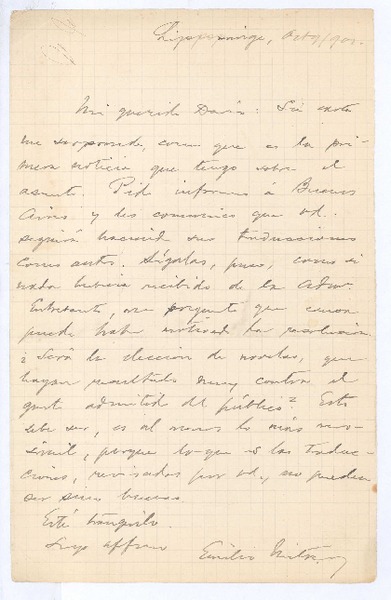 Lippspringe, Oct 9/901.
Mi querido Darío: Su carta
me sorprende, como que es la pri-
mera noticia que tengo sobre el
asunto. Pido informes á Buenos
Aires y les comunico que vd.
seguirá haciendo sus traducciones
como antes. Sígalas, pues, como si
nada hubiera recibido de la Admon.
Entretanto, me pregunto que causa
puede haber motivado la resolución.
¿Será la elección de novelas, que
hayan resultado muy contra el
gusto admitido del público? Esto
debe ser, es al menos lo más vero-
símil, porque lo que es las traduc-
ciones, revisadas por vd., no pueden
ser sino buenas.
Esté tranquilo.
Suyo affmo
Emilio Mitre